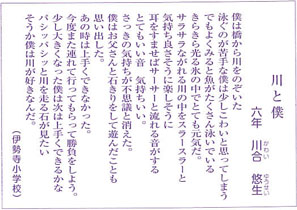 川と僕
六年　川合　悠生
かわい　ゆうせい
僕は橋から川をのぞいた
泳ぐのが苦手な僕は少しこわいと思ってしまう
でもよくみると魚がたくさん泳いでいる
きらきら光る水の中でとても元気だ。
サラサラながれる川の中をスラースラーと
気持ち良さそうに楽しそうに
耳をすませばサーと流れる音がする
とてもいい音　気持ちいい。
さっきの気持ちが不思議と消えた。
僕はお父さんと石きりをして遊んだことも
思い出した。
あの時は上手くできなかった。
今度また連れて行ってもらって勝負をしよう。
少し大きくなった僕は次は上手くできるかな
パシッパシッと川を走る石が見たい
そうか僕は川が好きなんだ。
（伊勢寺小学校）